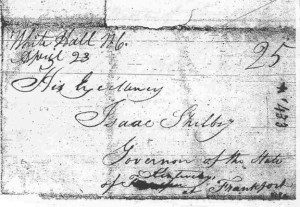 White Hall NC.
April 23
25
His Excellency
Isaac Shelby
Governor of the State
Kentucky
of at Frankfort